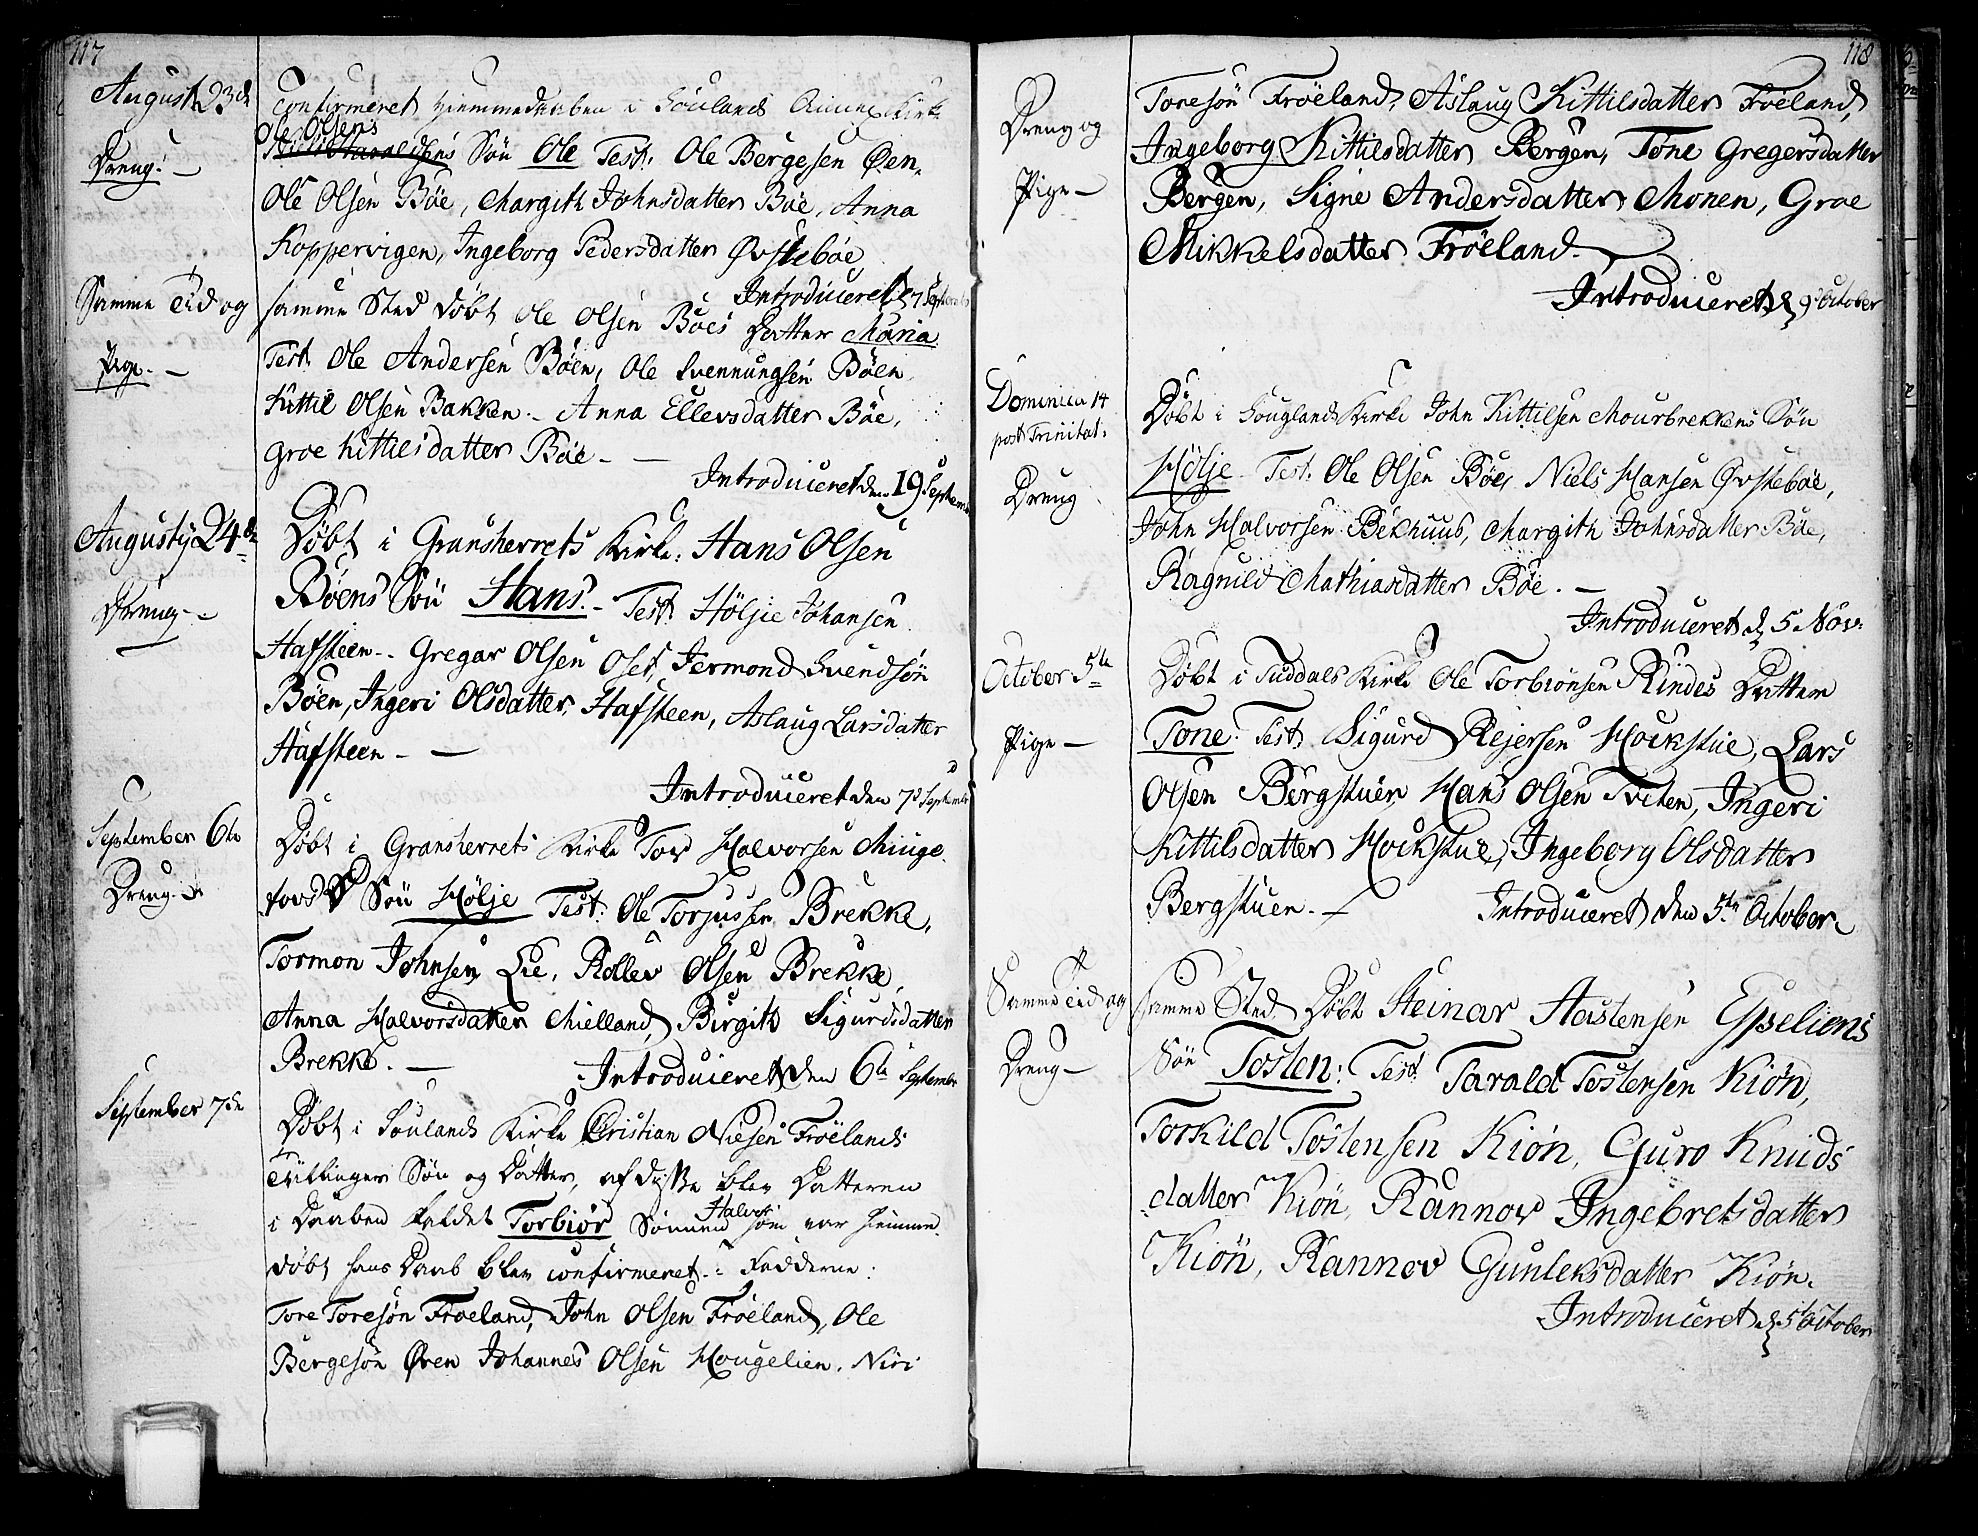 117
August 23de
Dreng. —
confirmeret Hiemmedaaben i Houlands Annex Kirke
Ole Olsens
Søn Ole Test: Ole Bergesen Øen,
Ole Olsen Böe, Margith Johnsdatter Böe, Anna
Koppervigen, Ingeborg Pedersdatter Øvstebøe
Introduceret d 7 Septembr
Samme Tid og
Pige. —
samme Sted döbt Ole Olsen Böes Datter Maria
Test Ole Andersen Böen, Ole Svennungsen Böen
Kittil Olsen Bakken — Anna Ellevsdatter Böe,
Groe Kittilsdatter Böe — —
Introduceret den 19 Septemb
Augusty 24de
Dreng —
Döbt i Gransherrets Kirke: Hans Olsen
Böens Søn Hans. — Test: Höljie Johansen
Hafsteen — Gregar Olsen Oset, Jermond Svendsön
Böen, Ingeri Olsdatter Hafsteen, Aslaug Larsdatter
Hafsteen — —
Introduceret den 7d September
September 6te
Dreng —
Döbt i Gransherrets Kirke Tov Halvorsen Minge-
tovds Søn Hölje Test: Ole Torjussen Brekke,
Tormon Johnsen Lie, Rollev Olsen Brekke
Anna Halvorsdatter Mielland, Birgith Sigurdsdatter
Brekke. — Introduceret den 6te Septembr
September 7de
Döbt i Houlands Kirke Christian Nielsen Fröelands
Tvillinger Søn og Datter, af disse blev Datteren
i Daaben kaldet Torbiör Sönnen Halvor som var hiemme-
döbt hans Daab blev confirmeret. — Fadderne:
Tore Toresön Fröeland, John Olsen Fröeland, Ole
Bergesön Øren Johannes Olsen Hougelien, Niri
118
Dreng og
Pige —
Toresön Fröeland, Aslaug Kittilsdatter Fröeland,
Ingeborg Kittilsdatter Bergen, Tone Gregersdatter
Bergen, Signe Andersdatter Monen, Groe
Mikkelsdatter Fröeland —
Introduceret d 9 October
Dominica 14
post Trinitat:
Dreng
Döbt i Houglands Kirke John Kittilsen Mourbrekkens Søn
Hölje — Test: Ole Olsen Böe, Niels Hansen Øvstebøe,
John Halvorsen Bekhuus, Margith Johnsdatter Böe,
Ragnild Mathiasdatter Böe. —
Introduceret d 5 Nov:
October 5te
Pige —
Döbt i Tuddals Kirke Ole Torbiönsen Rindes Datter
Tone: Test Sigurd Rejersen Hockstue, Lars
Olsen Bergstuen Hans Olsen Tveten, Ingeri
Kittilsdatter Hockstue, Ingeborg Olsdatter
Bergstuen. — Introduceret den 5te October
Samme Tid og
Dreng —
samme Sted Döbt Steinar Høistensen Espeliens
Søn Tosten: Test: Tarald Tostensen Kiön,
Torkild Tostensen Kiön, Guro Knuds
datter Kiön, Rannov Ingebretsdatter
Kiön, Rannov Gunleksdatter Kiön.
Introduceret d 5te October